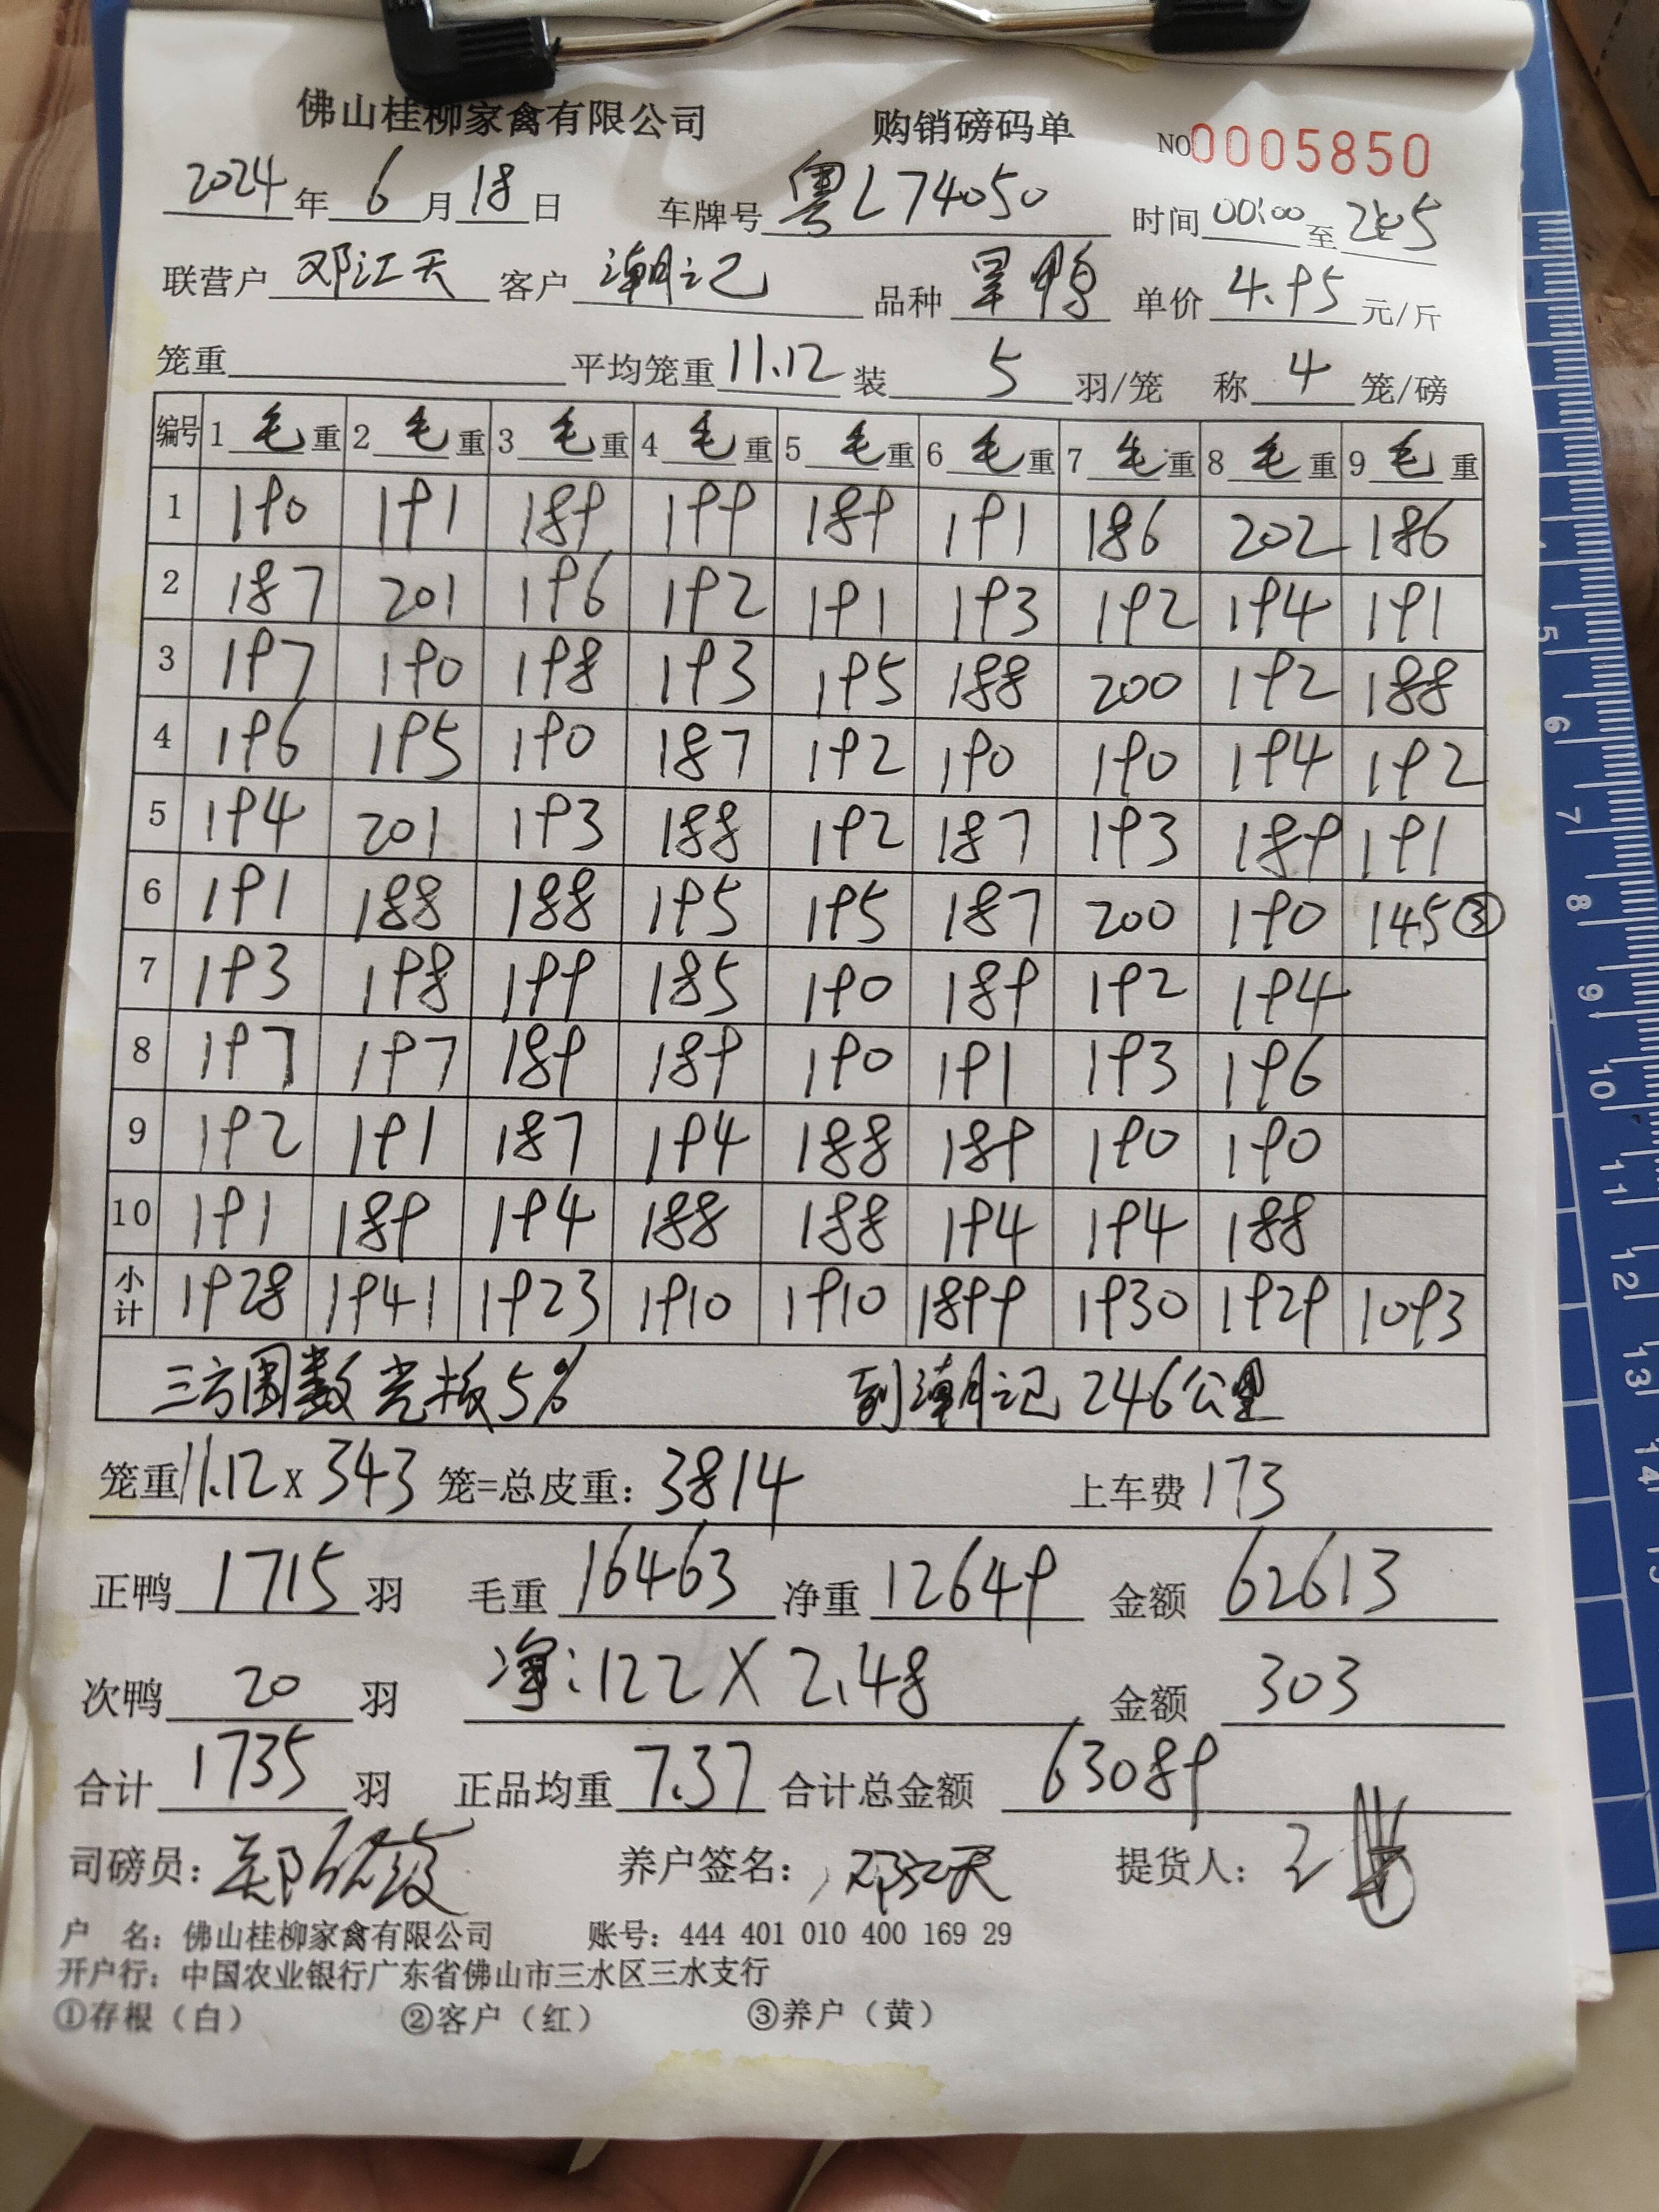 佛山桂柳家禽有限公司 购销磅码单 NO0005850
2024年6月18日 车牌号粤L74050 时间00:00至2:05
联营户邓江天 客户潮记 品种旱鸭 单价4.95元/斤
笼重 平均笼重11.12装5羽/笼 称4笼/磅
编号 1毛重 2毛重 3毛重 4毛重 5毛重 6毛重 7毛重 8毛重 9毛重
1 190 191 189 199 189 191 186 202 186
2 187 201 196 192 191 193 192 194 191
3 197 190 198 193 195 188 200 192 188
4 196 195 190 187 192 190 190 194 192
5 194 201 193 188 192 187 193 189 191
6 191 188 188 195 195 187 200 190 145③
7 193 198 199 185 190 189 192 194
8 197 197 189 189 190 191 193 196
9 192 191 187 194 188 189 190 190
10 191 189 194 188 188 194 194 188
小计 1928 1941 1923 1910 1910 1899 1930 1929 1093
三方围数 5% 到潮记246公里
笼重11.12x343笼=总皮重:3814 上车费173
正鸭1715羽 毛重16463净重12649 金额62613
次鸭20羽 净:122X2.48 金额303
合计1735羽 正品均重7.37合计总金额63089
司磅员:郑 养户签名:邓江天 提货人:王
户 名:佛山桂柳家禽有限公司 账号:444 401 010 400 169 29
开户行:中国农业银行广东省佛山市三水区三水支行
①存根(白) ②客户(红) ③养户(黄)
5
6
7
8
9
10
11
12
13
14
15